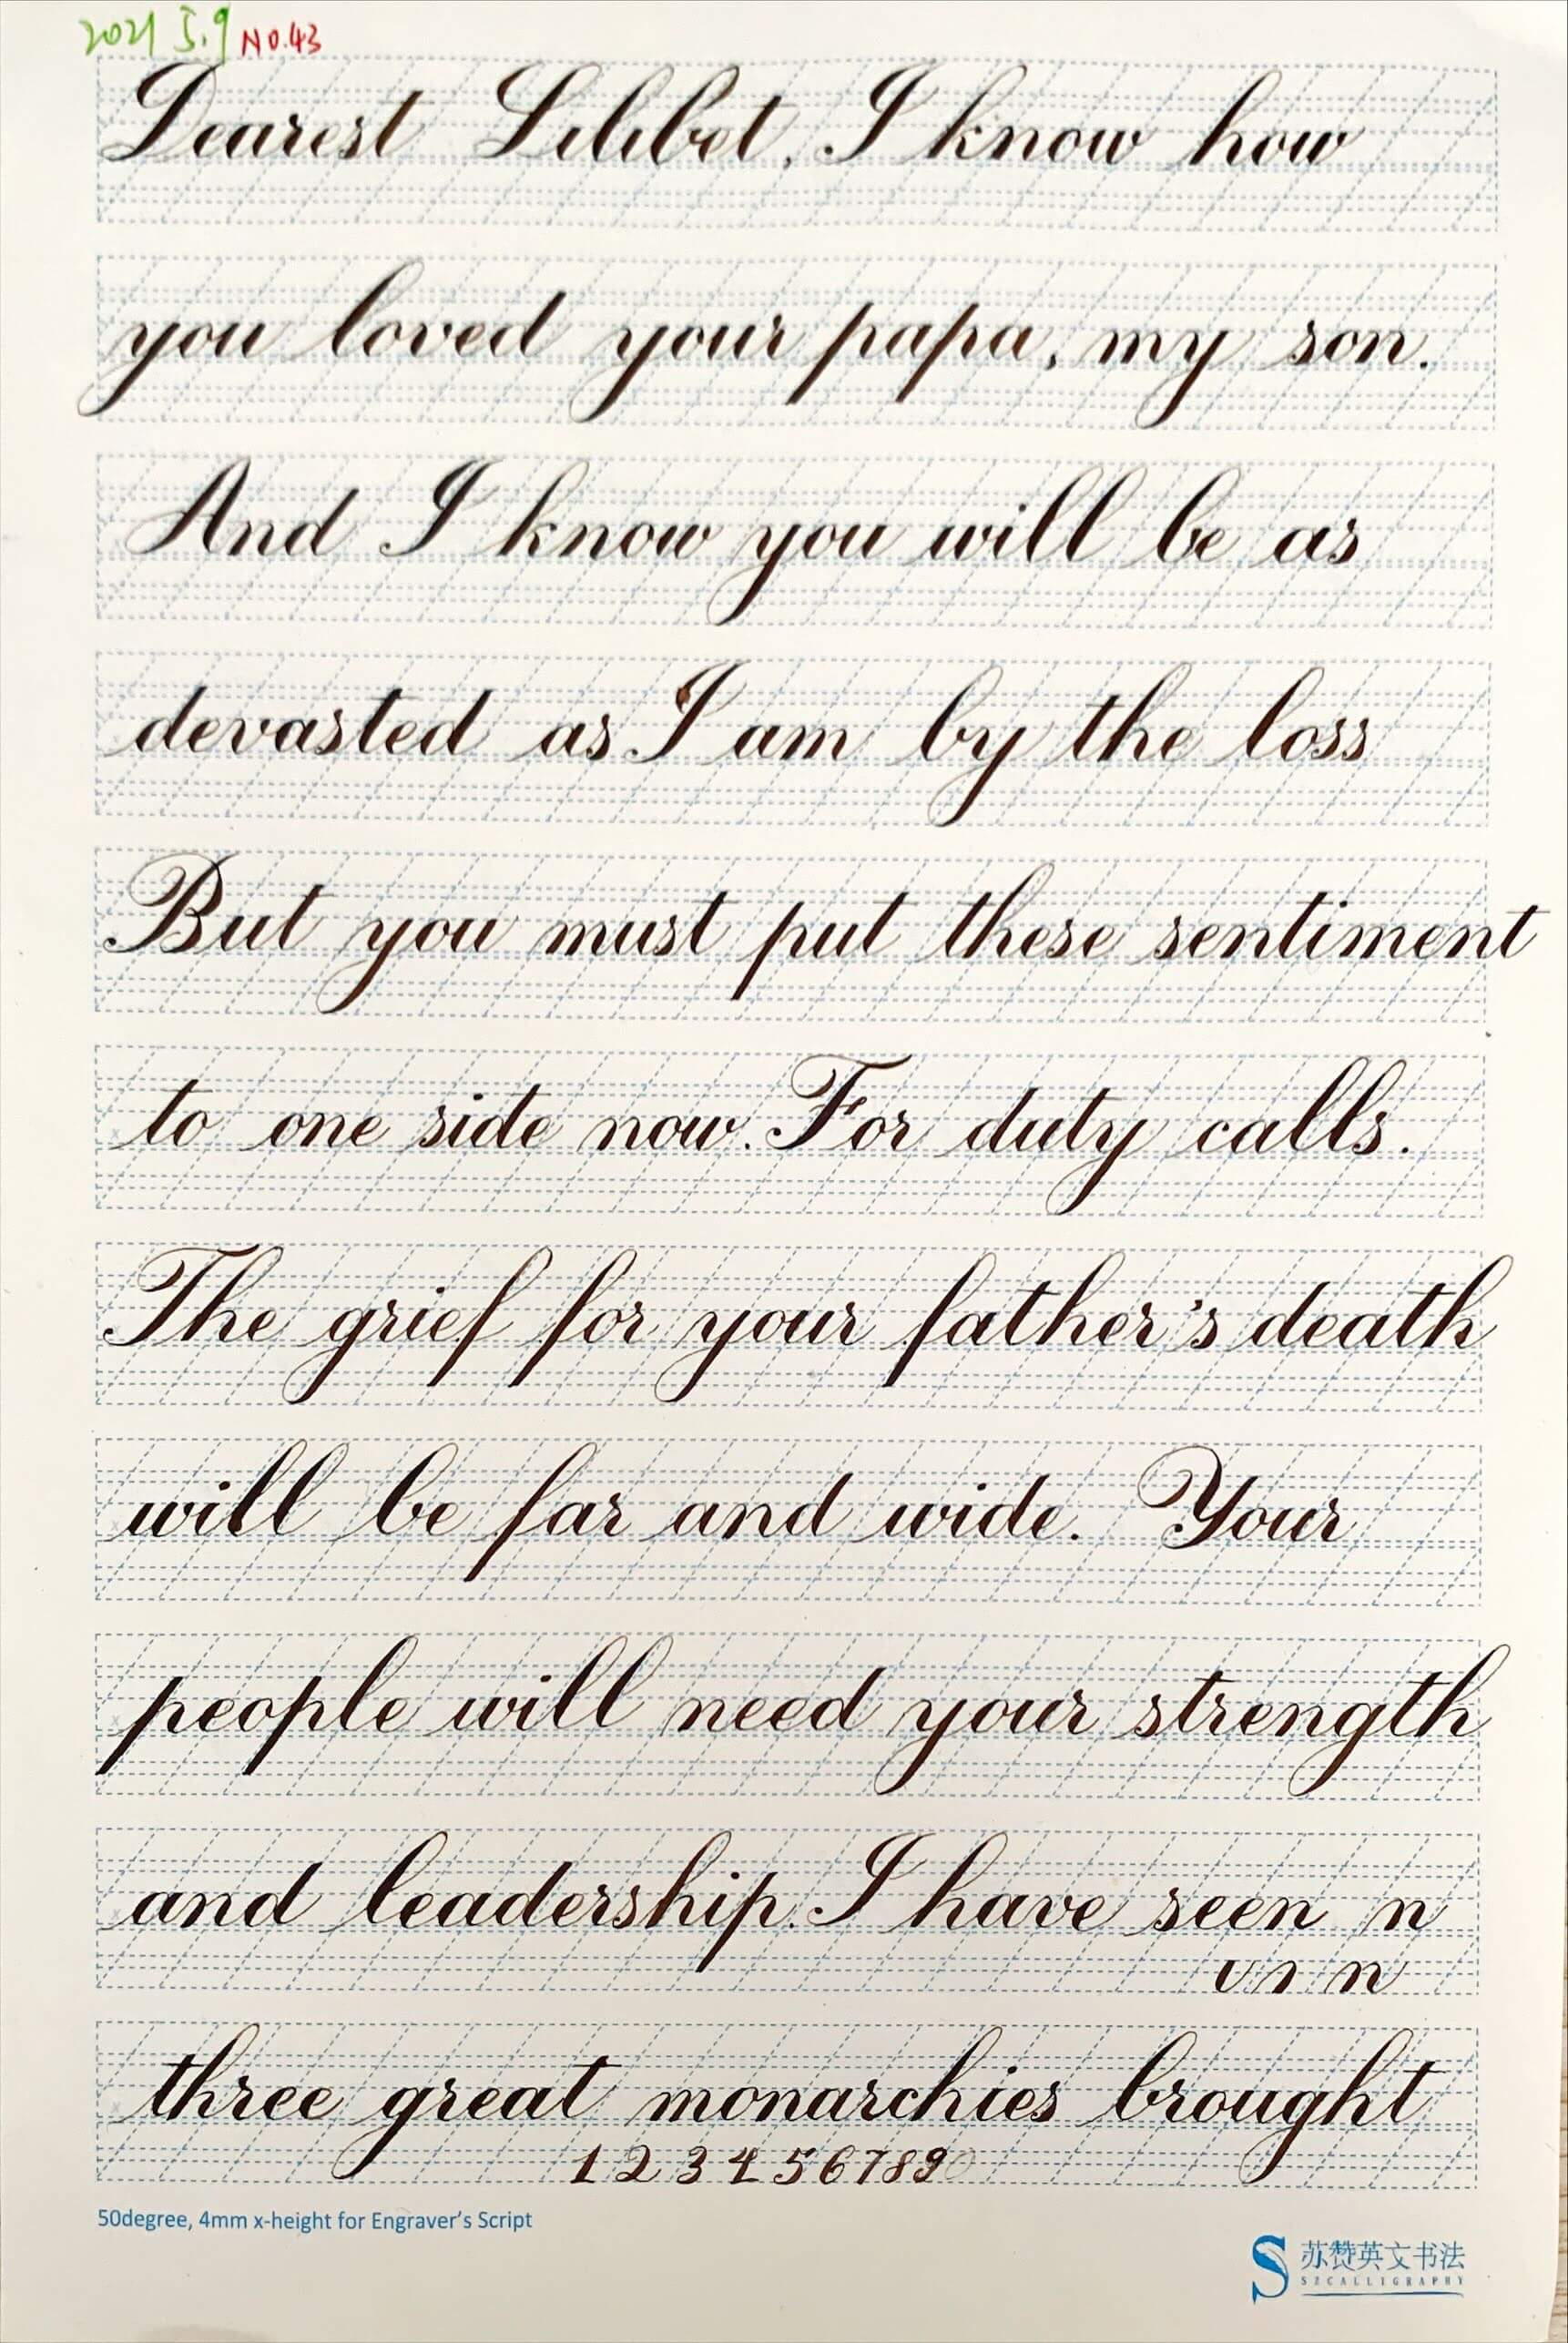 2021 5.9 No.43
Dearest Lilibet, I know how
you loved your papa, my son.
And I know you will be as
devasted as I am by the loss
But you must put these sentiment
to one side now. For duty calls.
The grief for your father's death
will be far and wide. Your
people will need your strength
and leadership. I have seen n
u n n
three great monarchies brought
1 2 3 4 5 6 7 8 9 0
50degree, 4mm x-height for Engraver's Script
苏赞英文书法
SZCALLIGRAPHY